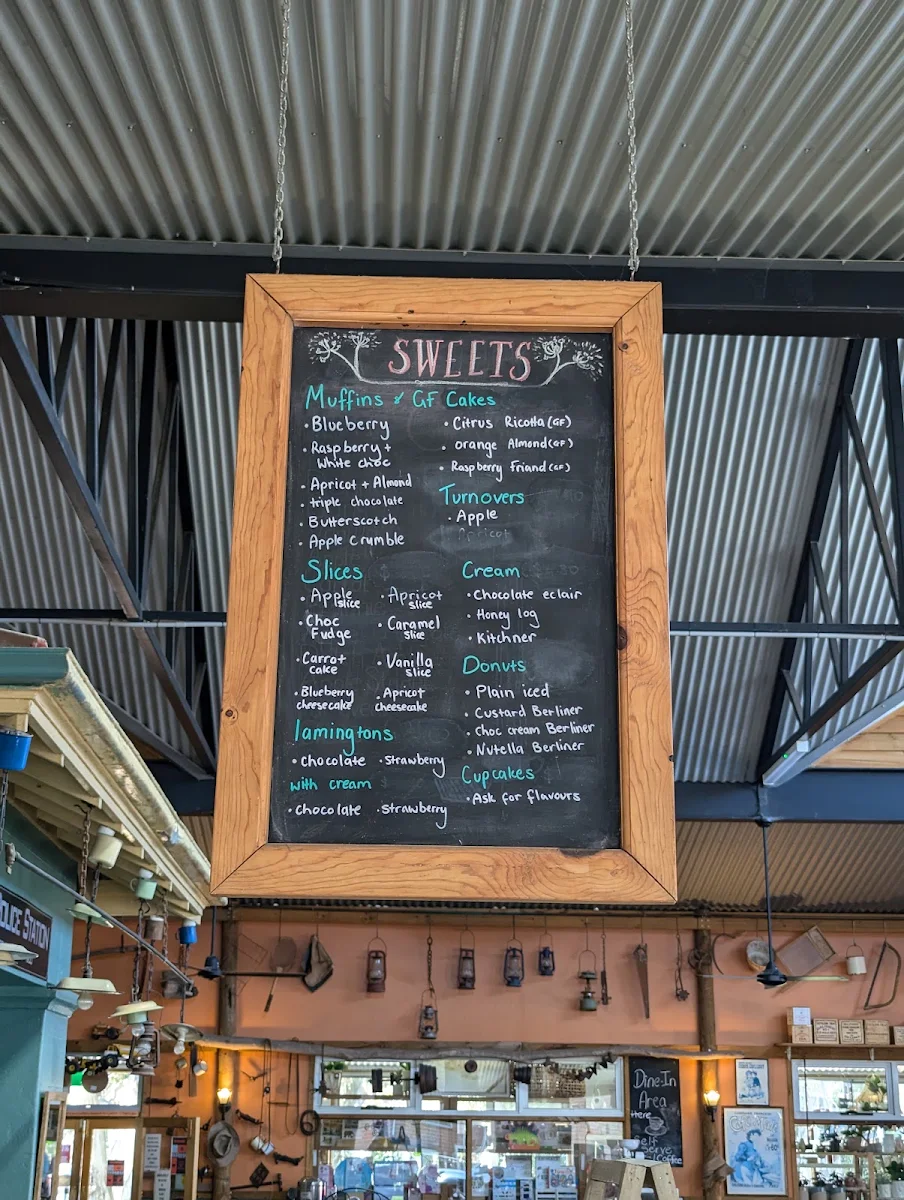 SWEETS
Muffins & GF Cakes
• Blueberry
• Raspberry +
White choc
• Apricot + Almond
• triple chocolate
• Butterscotch
• Apple Crumble
• Citrus Ricotta (GF)
• Orange Almond (GF)
• Raspberry Friand (GF)
Turnovers
• Apple
Apricot
Slices
• Apple slice
• Choc
Fudge
• Carrot
cake
• Blueberry
cheesecake
• Apricot
slice
• Caramel
slice
• Vanilla
slice
• Apricot
cheesecake
Cream
• Chocolate eclair
• Honey log
• Kitchner
Donuts
• Plain iced
• Custard Berliner
• choc cream Berliner
• Nutella Berliner
lamingtons
• chocolate • strawberry
with cream
• chocolate • strawberry
Cupcakes
• Ask for flavours
POLICE STATION
Dine-In
Area
Here
Self
Serve
Coffee